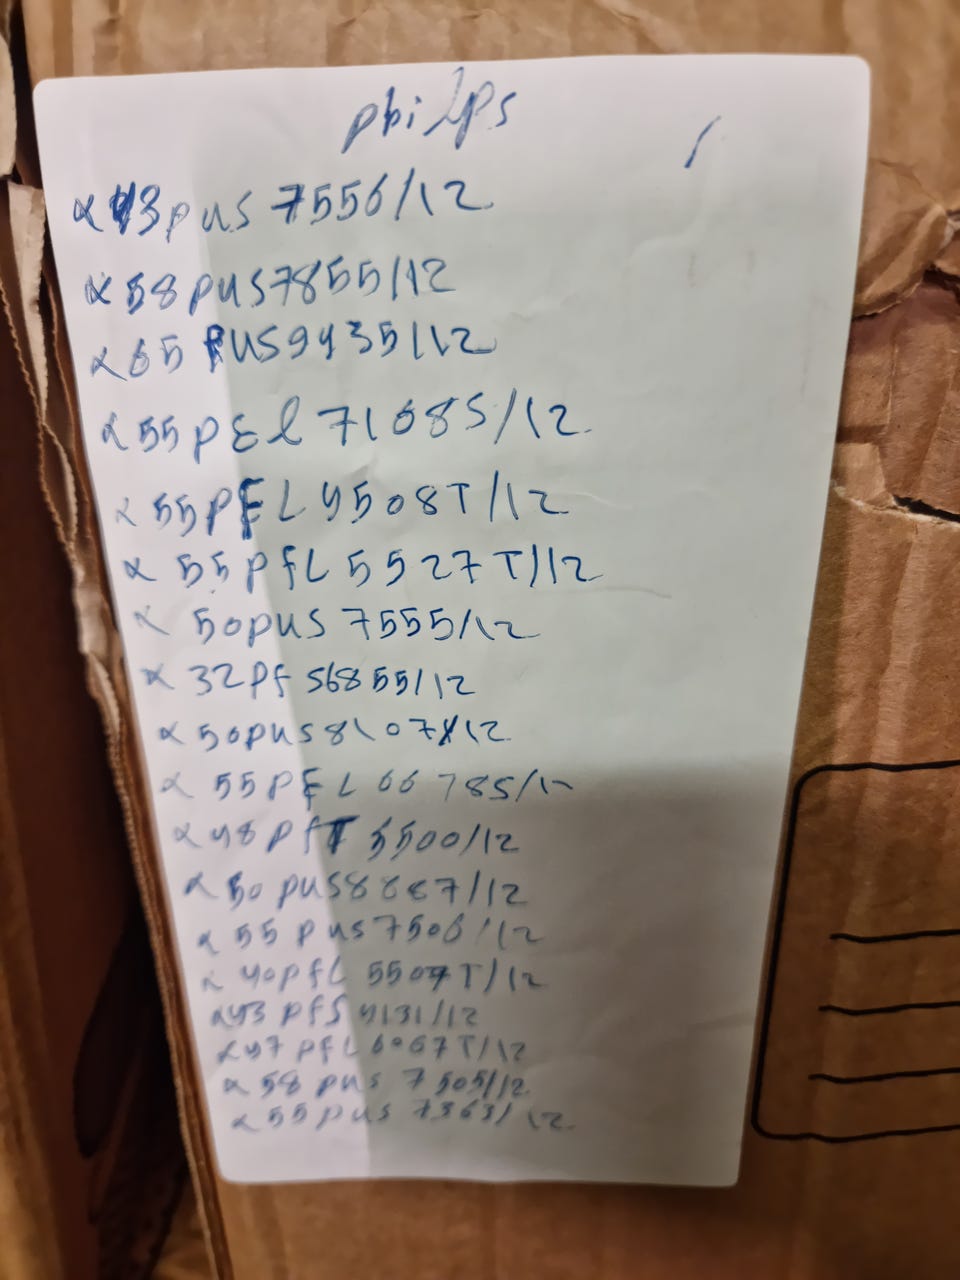 philps
x 43pus 7556/12
x 58pus7855/12
x 65 PUS9435/12
x 55pEl 7108S/12
x 55PFL4508T/12
x 55pfL5527T/12
x 50pus 7555/12
x 32pfs6855/12
x 50pus8107/12
x 55PFL6678S/12
x 48pfT5500/12
x 50pus8887/12
x 55pus7506/12
x 40pfL5507T/12
x 43pfS4131/12
x 47pfL6067T/12
x 58pus7505/12
x 55pus7363/12